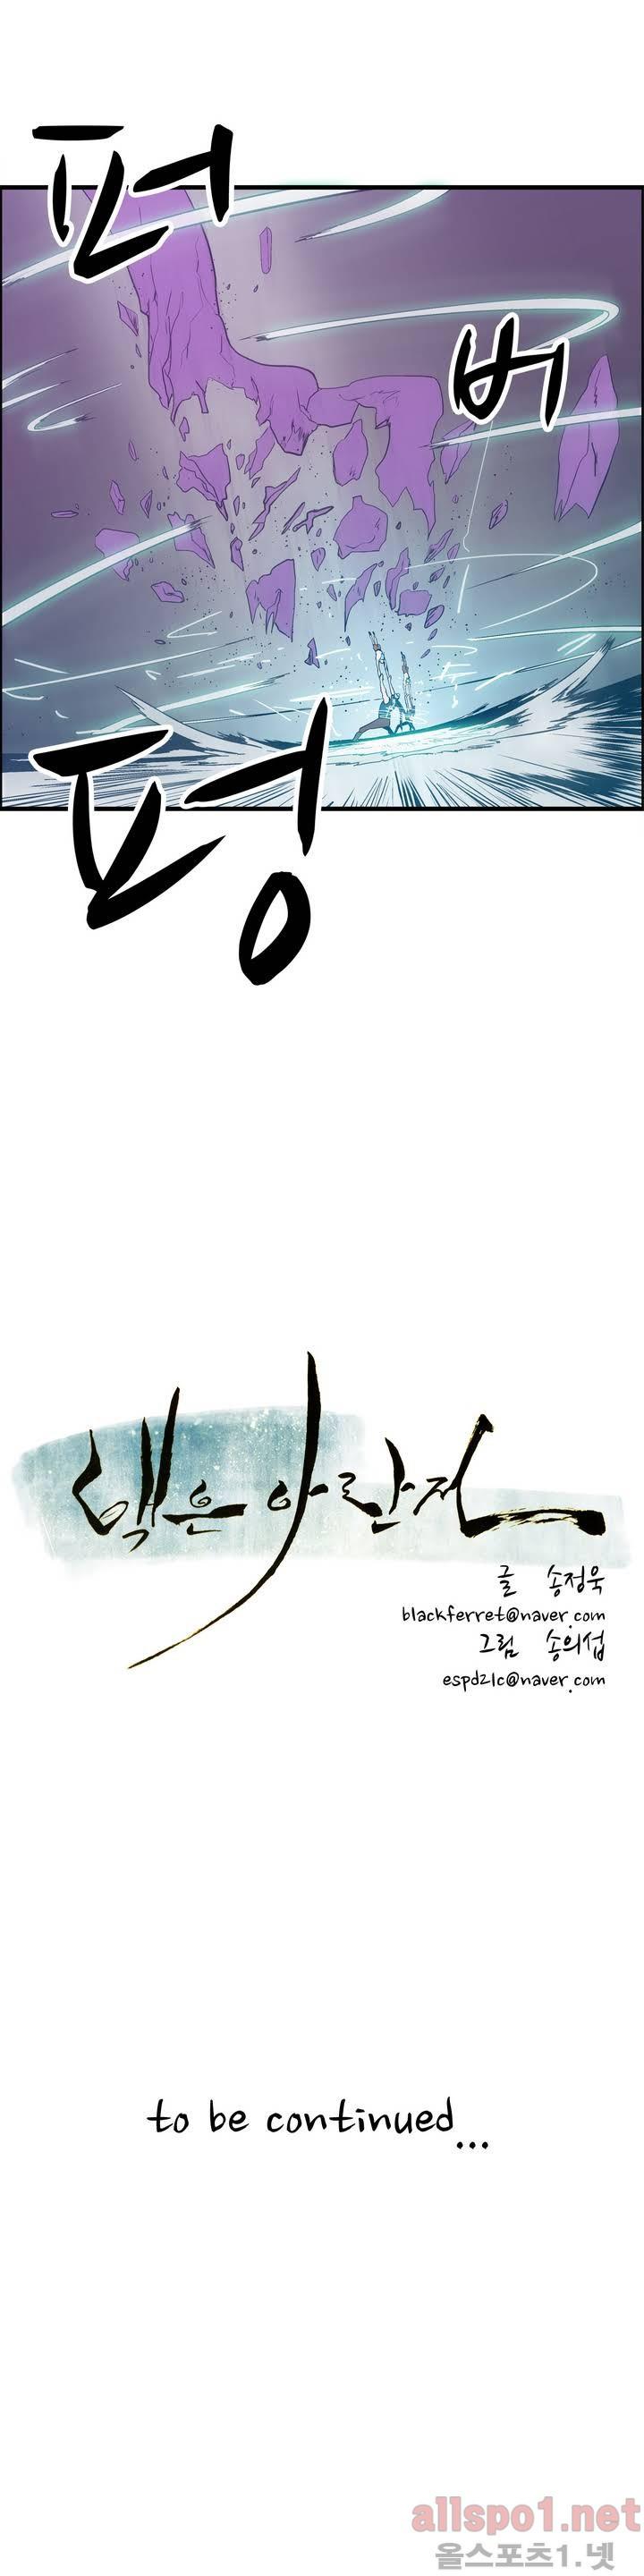 퍼
버
펑
백은아란전
글 송정욱
blackferret@naver.com
그림 송의섭
espd21c@naver.com
to be continued...
allspo1.net
올스포츠1.넷